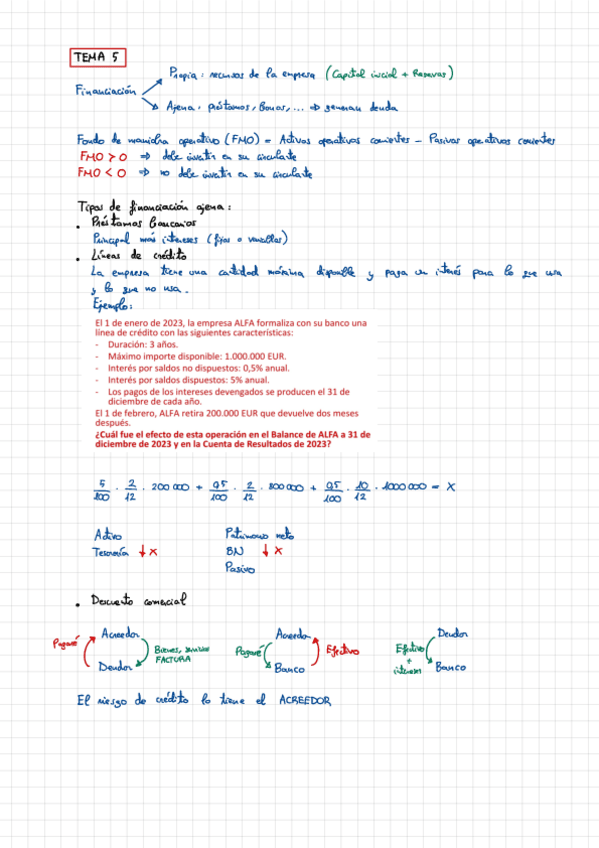 TEMA 5
Propia: recursos de la empresa (Capital inicial + Reservas)
Financiación
Ajena: préstamos, Bonos, ... ⇒ generan deuda
Fondo de maniobra operativo (FMO) = Activos operativos corrientes - Pasivos operativos corrientes
FMO > 0 ⇒ debe invertir en su circulante
FMO < 0 ⇒ no debe invertir en su circulante
Tipos de financiación ajena:
• Préstamos bancarios
Principal más intereses (fijos o variables)
• Líneas de crédito
La empresa tiene una cantidad máxima disponible y paga un interés para lo que usa
y lo que no usa.
Ejemplo:
El 1 de enero de 2023, la empresa ALFA formaliza con su banco una
línea de crédito con las siguientes características:
- Duración: 3 años.
- Máximo importe disponible: 1.000.000 EUR.
- Interés por saldos no dispuestos: 0,5% anual.
- Interés por saldos dispuestos: 5% anual.
- Los pagos de los intereses devengados se producen el 31 de
diciembre de cada año.
El 1 de febrero, ALFA retira 200.000 EUR que devuelve dos meses
después.
¿Cuál fue el efecto de esta operación en el Balance de ALFA a 31 de
diciembre de 2023 y en la Cuenta de Resultados de 2023?
5/100 · 2/12 · 200 000 + 0,5/100 · 2/12 · 800 000 + 0,5/100 · 10/12 · 1000 000 = X
Activo Patrimonio neto
Tesorería ↓ X BN ↓ X
Pasivo
• Descuento comercial
Acreedor Acreedor Deudor
Pagaré Bienes, servicios Pagaré Efectivo Efectivo
FACTURA + intereses
Deudor Banco Banco
El riesgo de crédito lo tiene el ACREEDOR